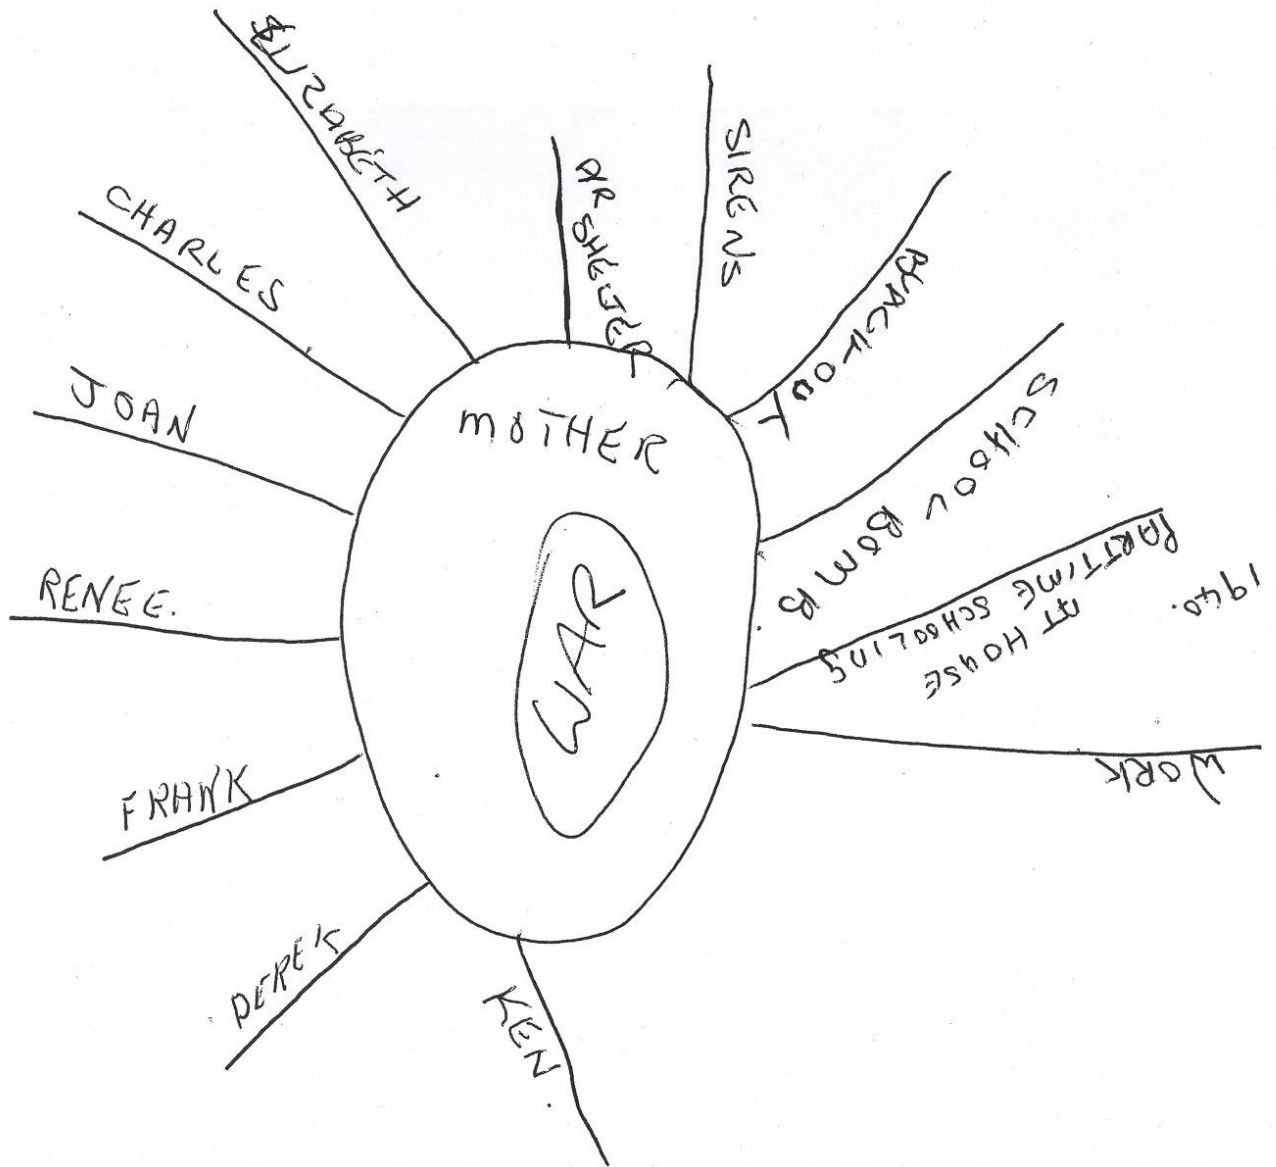 MOTHER
WAR
ELIZABETH
CHARLES
JOAN
RENEE.
FRANK
DEREK
KEN.
AIR SHELTER
SIRENS
BLACKOUT
SCHOOL BOMB
PARTTIME SCHOOLING
AT HOUSE
1940.
WORK